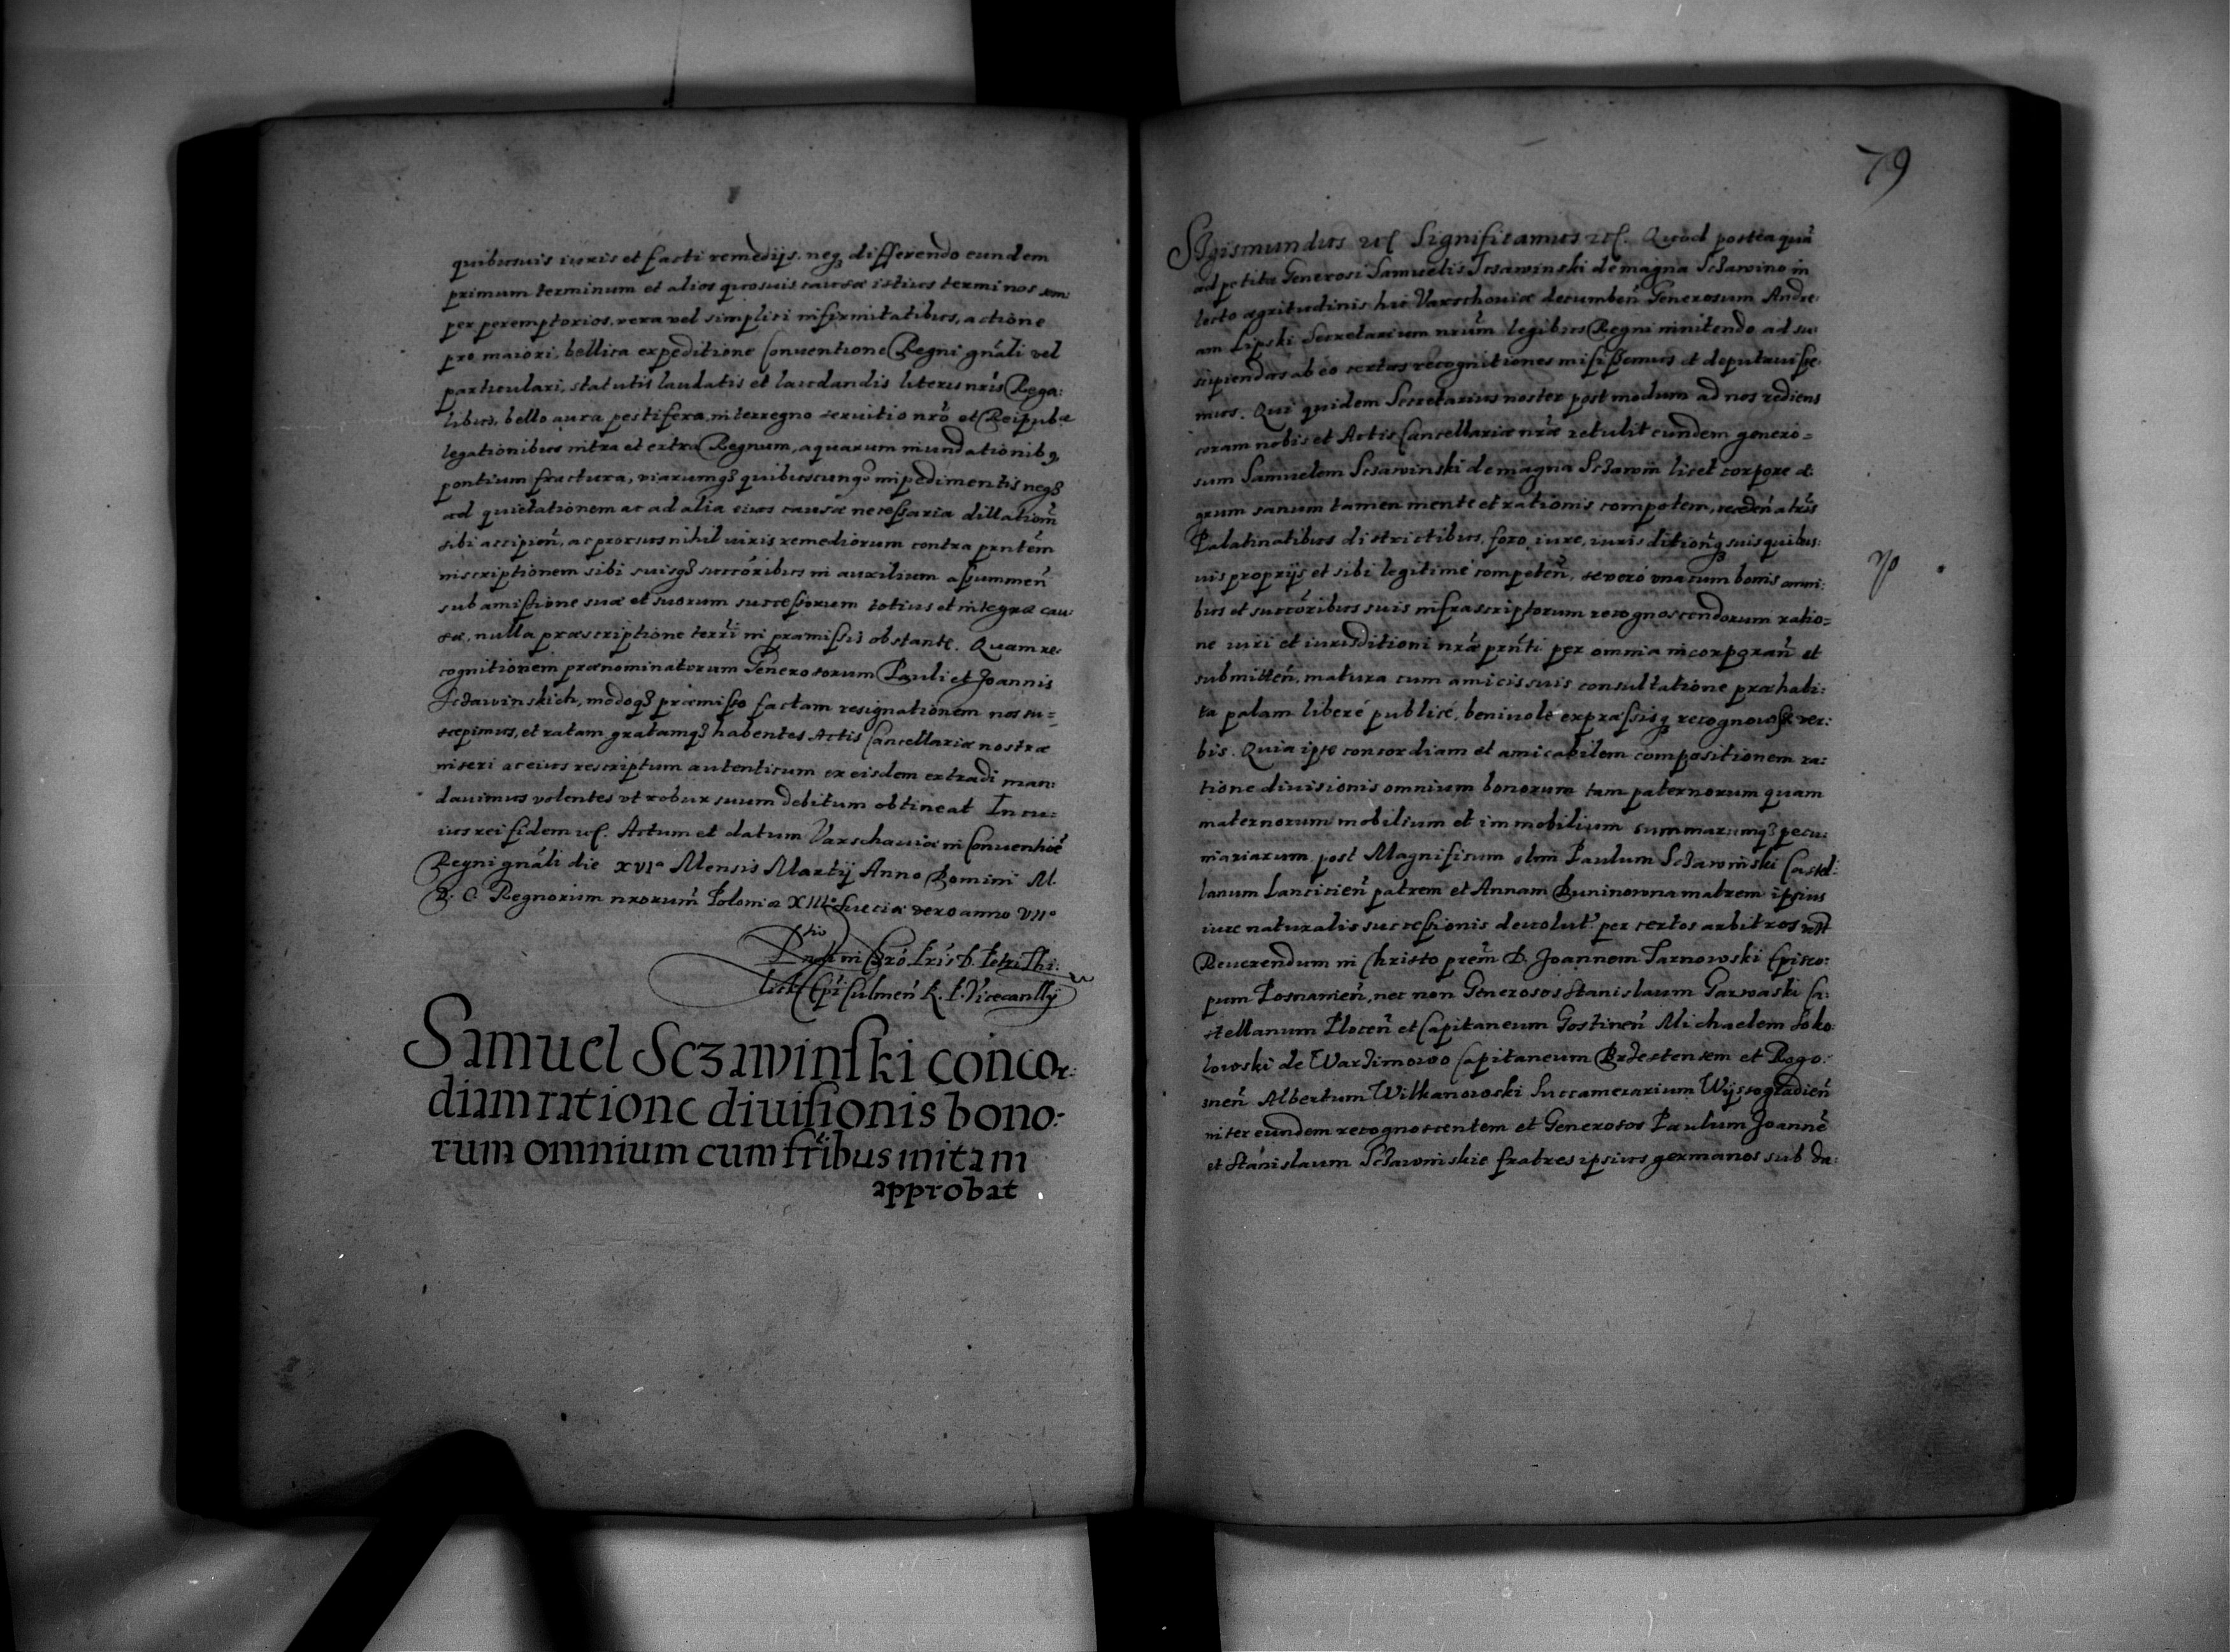 quibusuis iuris et facti remedijs. neq differendo eundem
primum terminum et alios quosuis causæ istius terminos sem:
per peremptorios. vera vel simplici infirmitatibus, actione
pro maiori, bellica expeditione Conuentione Regni gnãli vel
particulari, statutis laudatis et laudandis literis nris Rega:
libus, bello aura pestifera, interregno seruitio nrõ et Reipubæ
legationibus intra et extra Regnum, aquarum inundationibq
pontium fractura, viarumq3 quibuscunq3 impedimentis neq3
ad quietationem ac ad alia eius causæ necessaria dillationẽ
sibi accipien̄, ac prorsus nihil iuris remediorum contra prntẽm
inscriptionem sibi suisq3 succõribus in auxilium assummen̄
sub amissione suæ et suorum successorum totius et integræ cau:
sæ, nulla præscriptione terri in præmissis obstante. Quam re:
cognitionem prænominatorum Generosorum Pauli et Joannis
Sczawinskich, modoq3 præmisso factam resignationem nos su=
scepimus, et ratam gratamq3 habentes Actis Cancellariæ nostræ
inseri ac eius rescriptum autenticum ex eisdem extradi man:
dauimus volentes vt robur suum debitum obtineat In cu:
ius rei fidem etc. Actum et datum Varschauiæ in Conuentiõe
Regni gnãli die XVIa Mensis Martij Anno Domini M.
D. C Regnorum nrorum Poloniæ XIIIo Sueciæ vero anno VIIo
Rndi in Chrõ Pris D. Petri Thi:
licki Epi Culmen̄ R. P. Vicecanllij
Samuel Sczawinski concor:
diam ratione diuisionis bono:
rum omnium cum frĩbus initam
approbat
79
Sigismundus etc Significamus etc. Quod postea quã
ad petita Generosi Samuelis Sczawinski de magna Sczawino in
lecto ægritudinis hic Varschouiæ decumben̄ Generosum Andre:
am Lipski Secretarium nrũm legibus Regni innitendo ad su:
scipiendas ab eo certas recognitiones misissemus et deputauisse:
mus. Qui quidem Secretarius noster postmodum ad nos rediens
coram nobis et Actis Cancellariæ nrãe retulit eundem genero=
sum Samuelem Sczawinski de magna Sczawin licet corpore æ:
grum sanum tamen mente et rationis compotem, receden̄ a tris
Palatinatibus districtibus, foro, iure, iurisditionq suis quibus:
uis proprijs et sibi legitime competen̄, se vero vna cum bonis omni:
bus et succõribus suis infrascriptorum recognoscendorum ratio=
ne iuri et iurisditioni nrãe prnti per omnia incorporan̄ et
submitten̄, matura cum amicis suis consultatione præhabi:
ta palam liberé publicé, beniuole expræssisq recognouisse ver:
bis. Quia ipse concordiam et amicabilem compositionem ra:
tione diuisionis omnium bonorum tam paternorum quam
maternorum mobilium et immobilium summarumq3 pecu:
niariarum post Magnificum olim Paulum Sczawinski Castel:
lanum Lancicien̄ patrem et Annam Duninowna matrem ipsius
iure naturalis successionis deuolut. per certos arbitros
Reuerendum in Christo prẽm D. Joannem Tarnowski Episco:
pum Posnanien̄, nec non Generosos Stanislaum Garwaski Ca:
stellanum Plocen̄ et Capitaneum Gostinen̄ Michaelem Soko:
lowski de Wardimowo Capitaneum Brzestensem et Rogo:
znen̄ Albertum Wilkanowski Succamerarium Wyssogradien̄
inter eundem recognoscentem et Generosos Paulum Joannẽ
et Stanislaum Sczawinskie fratres ipsius germanos sub da: